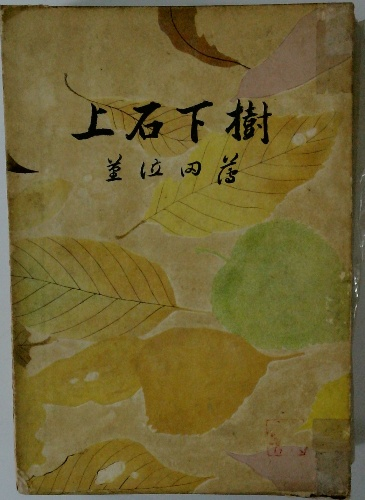 樹下石上
薄田泣菫